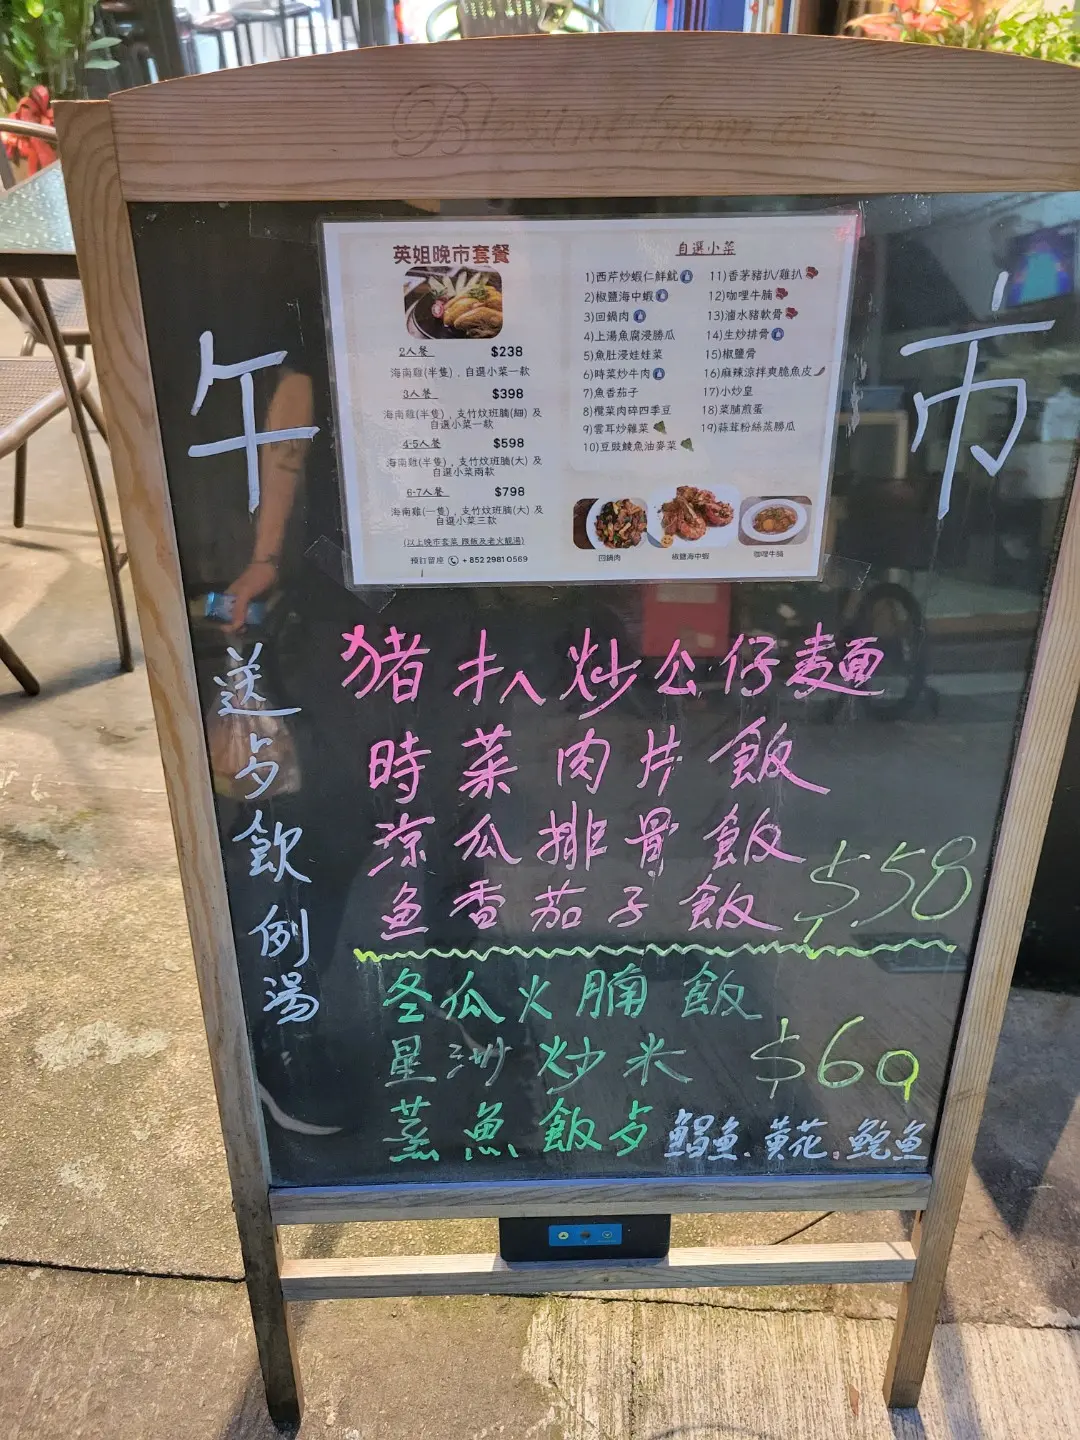 Blessing from
午市
英姐晚市套餐
2人餐 $238
海南雞(半隻)，自選小菜一款
3人餐 $398
海南雞(半隻)，支竹炆班腩(細)及
自選小菜一款
4-5人餐 $598
海南雞(半隻)，支竹炆班腩(大) 及
自選小菜兩款
6-7人餐 $798
海南雞(一隻)，支竹炆班腩(大) 及
自選小菜三款
(以上晚市套菜 跟飯及老火靚湯)
預訂留座 + 852 2981 0569
自選小菜
1)西芹炒蝦仁鮮魷
2)椒鹽海中蝦
3)回鍋肉
4)上湯魚腐浸勝瓜
5)魚肚浸娃娃菜
6)時菜炒牛肉
7)魚香茄子
8)欖菜肉碎四季豆
9)雲耳炒雜菜
10)豆豉鯪魚油麥菜
11)香茅豬扒/雞扒
12)咖哩牛腩
13)滷水豬軟骨
14)生炒排骨
15)椒鹽骨
16)麻辣涼拌爽脆魚皮
17)小炒皇
18)菜脯煎蛋
19)蒜茸粉絲蒸勝瓜
回鍋肉
椒鹽海中蝦
咖哩牛腩
送夕飲例湯
猪扒炒公仔麵
時菜肉片飯
涼瓜排骨飯
魚香茄子飯 $58
冬瓜火腩飯
星洲炒米 $60
蒸魚飯夕 鯧魚.黃花.鯇魚